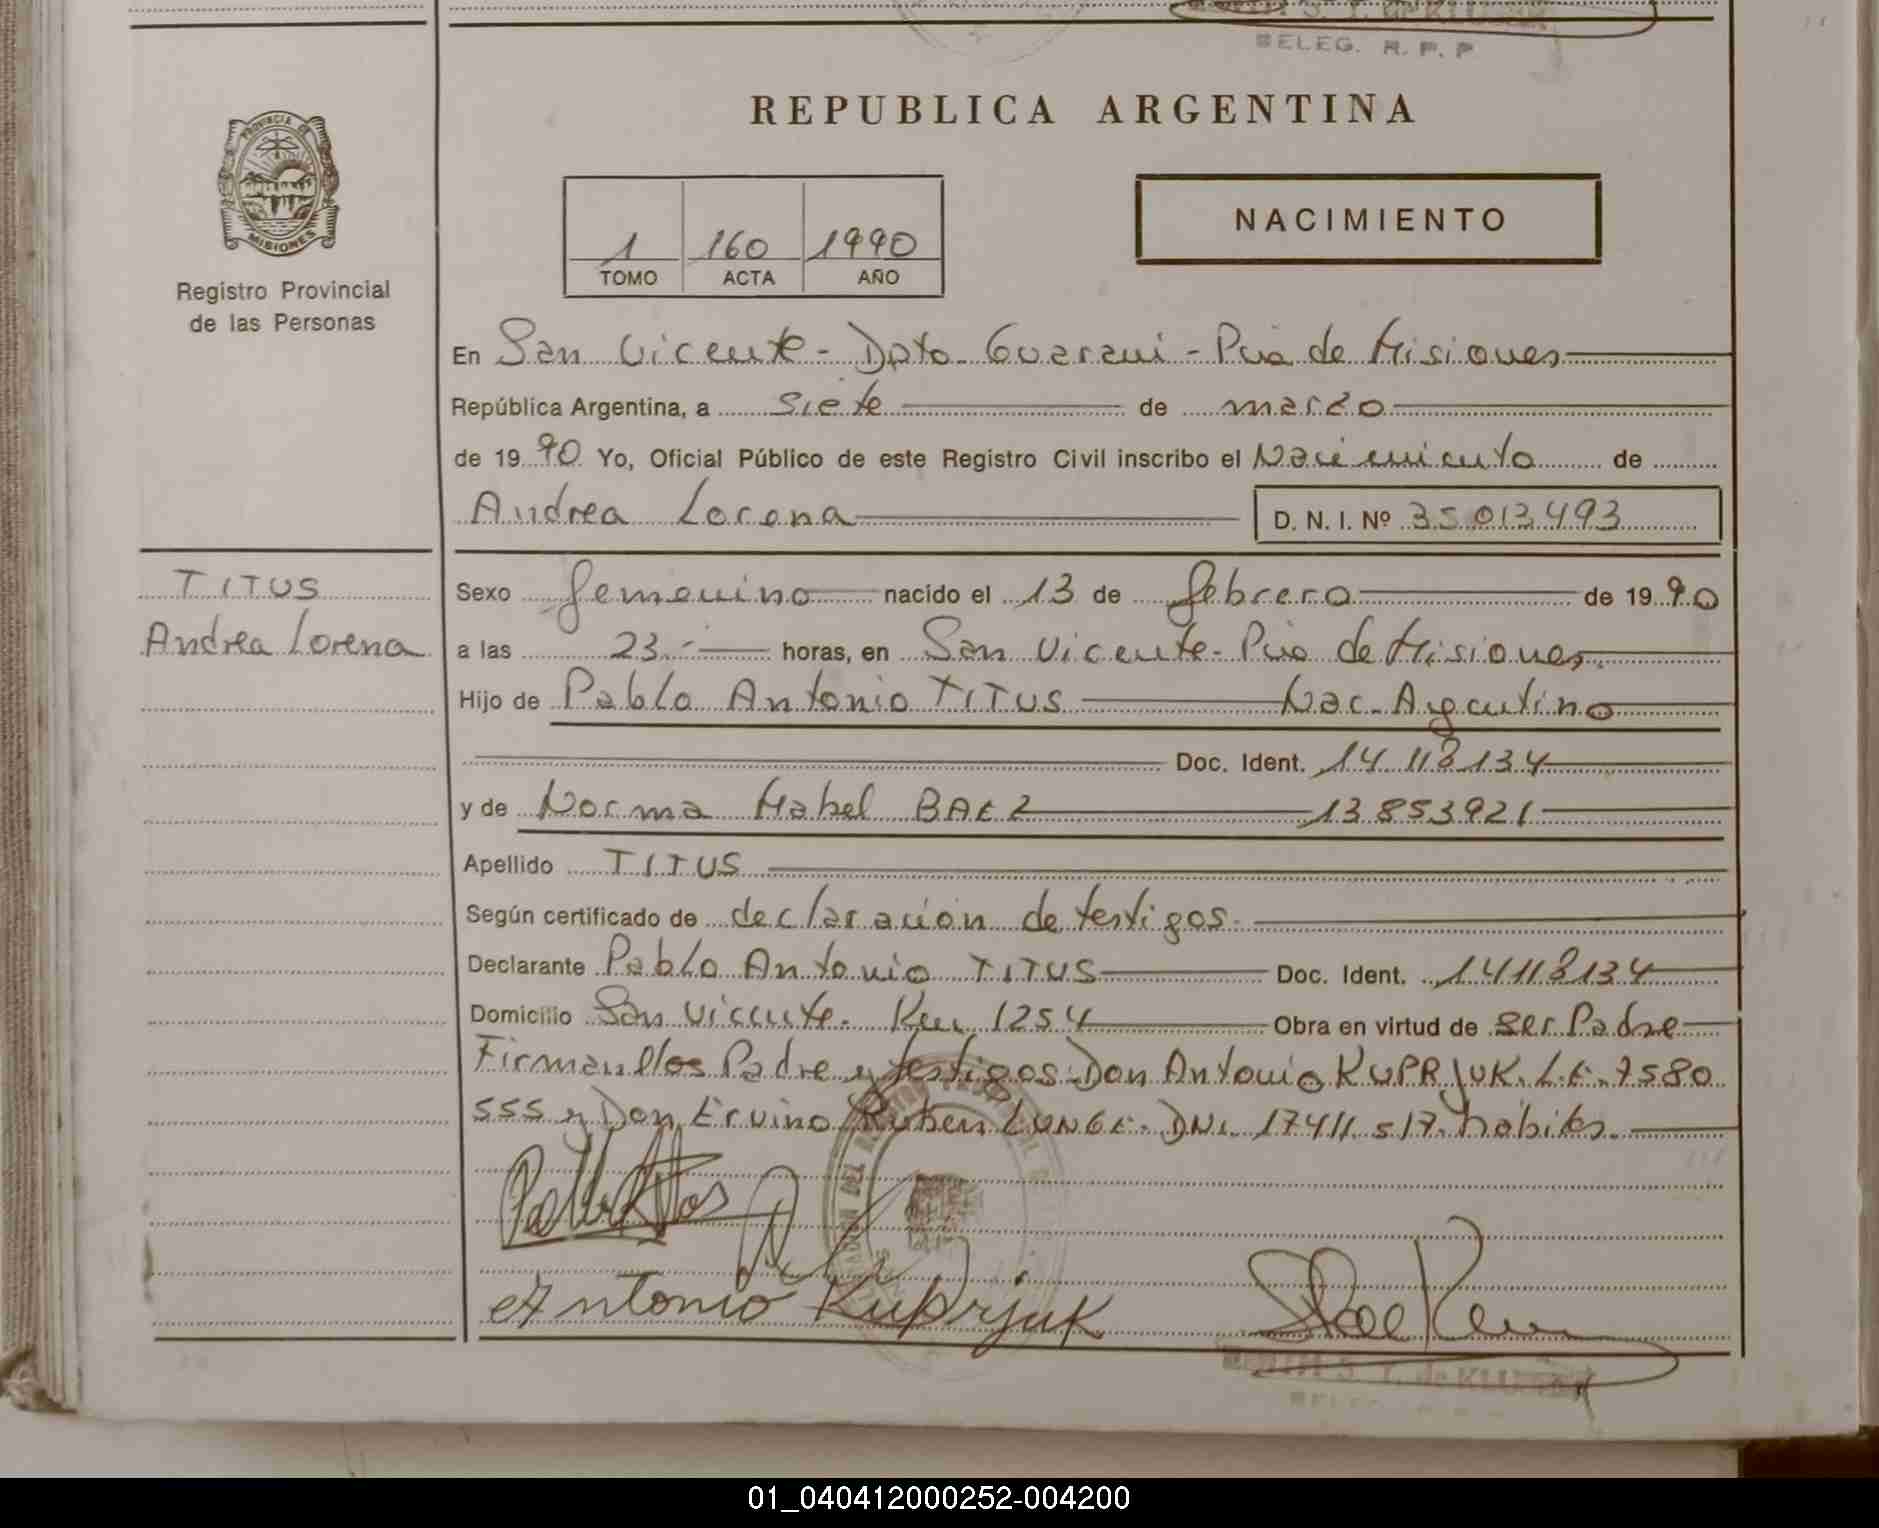 BELEG. R. P. P
REPUBLICA ARGENTINA
PROVINCIA DE
MISIONES
Registro Provincial
de las Personas
1 160 1990
TOMO ACTA AÑO
NACIMIENTO
En San Vicente - Dpto. Guarani - Pcia de Misiones
República Argentina, a siete de marzo
de 1990 Yo, Oficial Público de este Registro Civil inscribo el Nacimiento de
Andrea Lorena D. N. I. Nº 35013493
TITUS
Andrea Lorena
Sexo femenino nacido el 13 de febrero de 1990
a las 23.- horas, en San Vicente - Pcia de Misiones.
Hijo de Pablo Antonio TITUS Nac. Argentino
Doc. Ident. 14 118134
y de Norma Mabel BAEZ 13853921
Apellido TITUS
Según certificado de declaración de testigos.
Declarante Pablo Antonio TITUS Doc. Ident. 14118134
Domicilio San Vicente. Km 1254 Obra en virtud de ser Padre
Firman los Padre y testigos: Don Antonio KUPRJUK. L.E. 7580
555 y Don Ervino Ruben LUNGE. DNI. 17411517. hábiles.
Antonio Kuprjuk